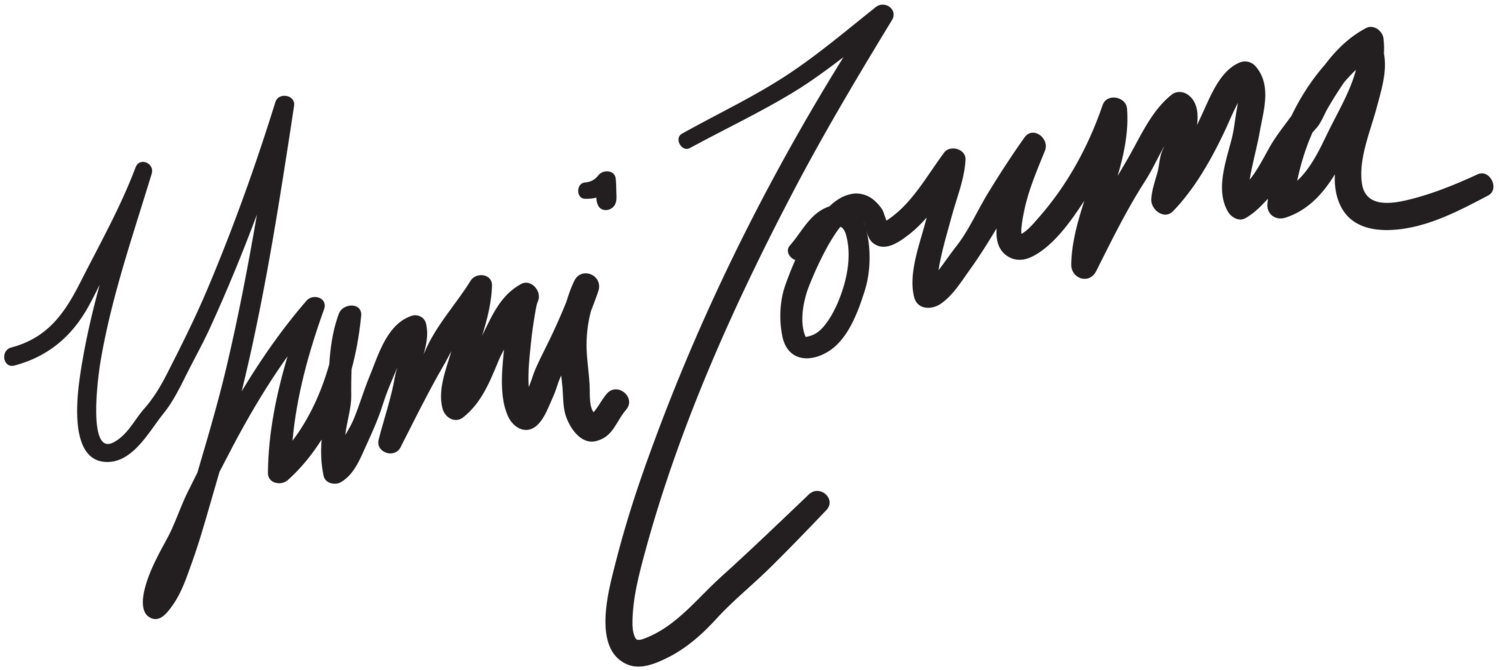 Yumi Zouma